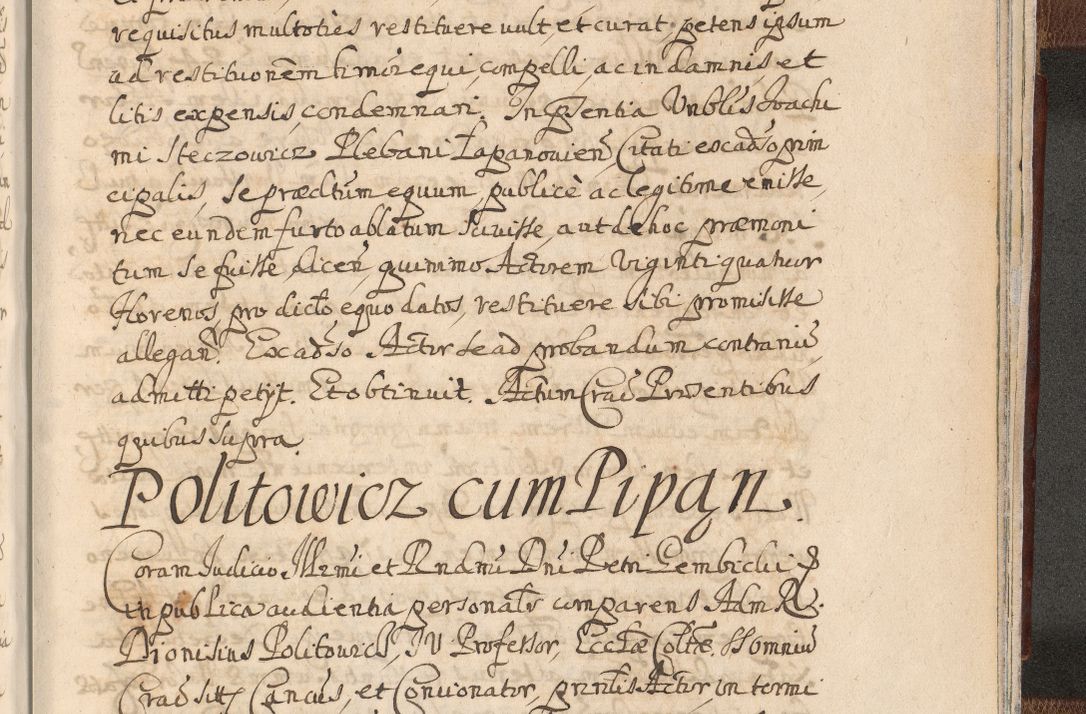 requisitus multoties restituere vult, et curat petens ipsum
ad restitutionem timore equi, compelli ac in damnis et
litis expensis, condemnari. In pntia Vnblis Joachi
mi Steczowicz Plebani Łapanovien Citati ex adso prin
cipalis, se prædctum equum, publicè ac legitime emisse,
nec eundem furto ablatum scivisse, aut de hoc præmoni
tum se fuisse dicen, quinimo Actorem viginti quatuor
florenos, pro dicto equo datos, restituere sibi promisisse
allegan. Ex adso Actor se ad probandum contrariu
admitti petijt. Et obtinuit. Actum Crac Præsentibus
quibus supra.
Politowicz cum Pipan.
Coram Judicio Illrmi et Rndmi Dni Petri Gembicki
in publica audientia personalr comparens Adm R.
Dionisius Politowicz, JU Professor, Ecclæ Coltæ SS omniu
Crac sitt Cancus, et Concionator, prntis Actor in termi